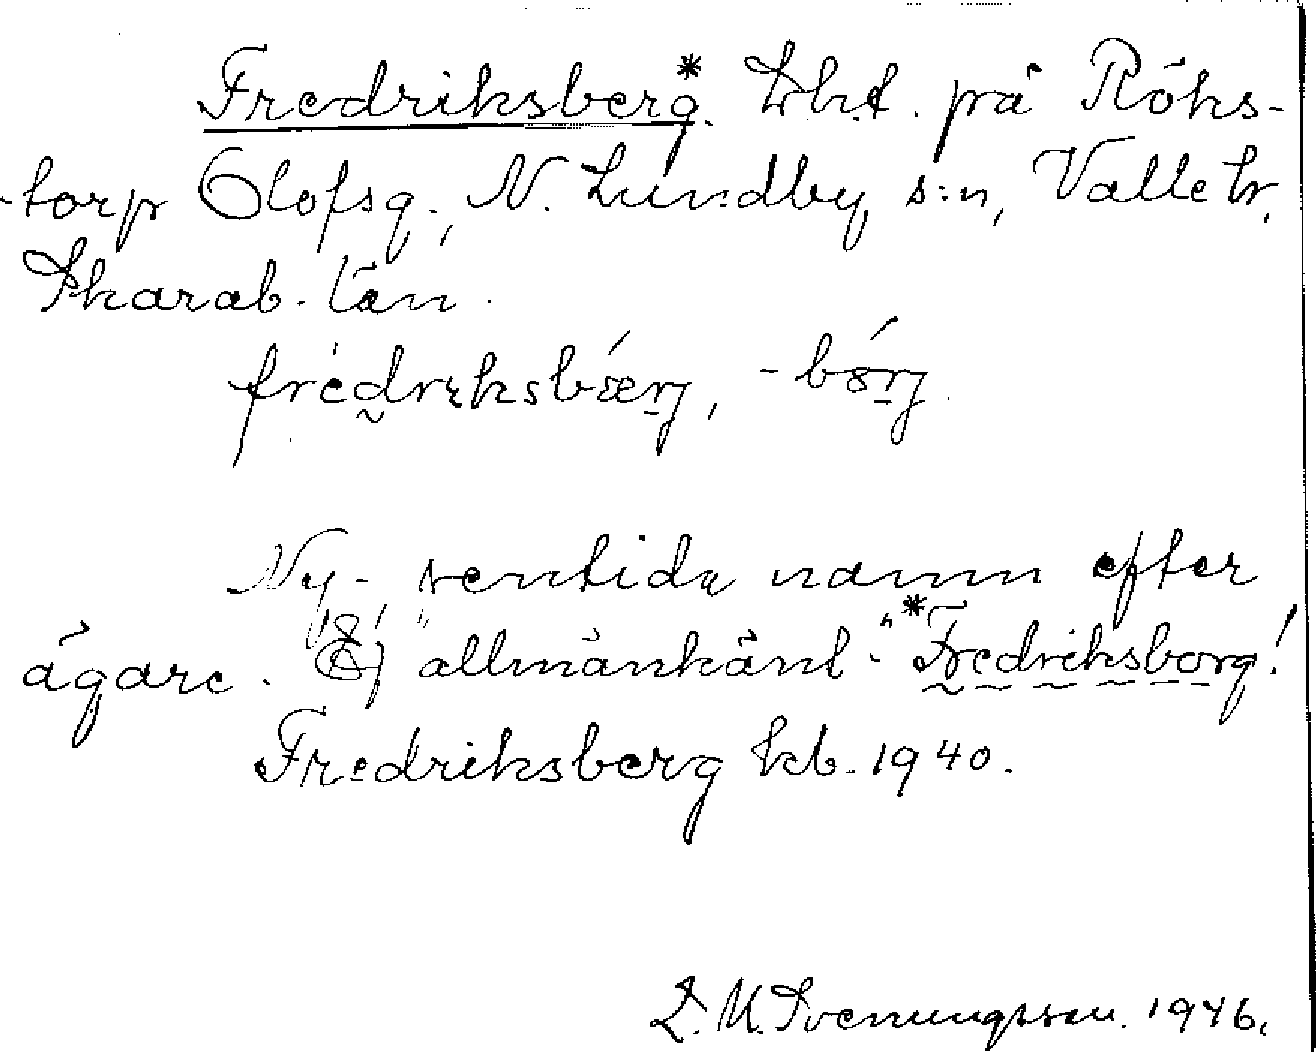 Fredriksberg.* Lht. på Röks-
torp Olofsg., N. Lundby s:n, Valle hr,
Skarab. län.
frédrɩksbærj, -bȯrj.
Ny- sentida namn efter
ägare. Ej "allmänkänt". "*Fredriksborg!
Fredriksberg kb. 1940.
L. M. Svenungsson. 1946.